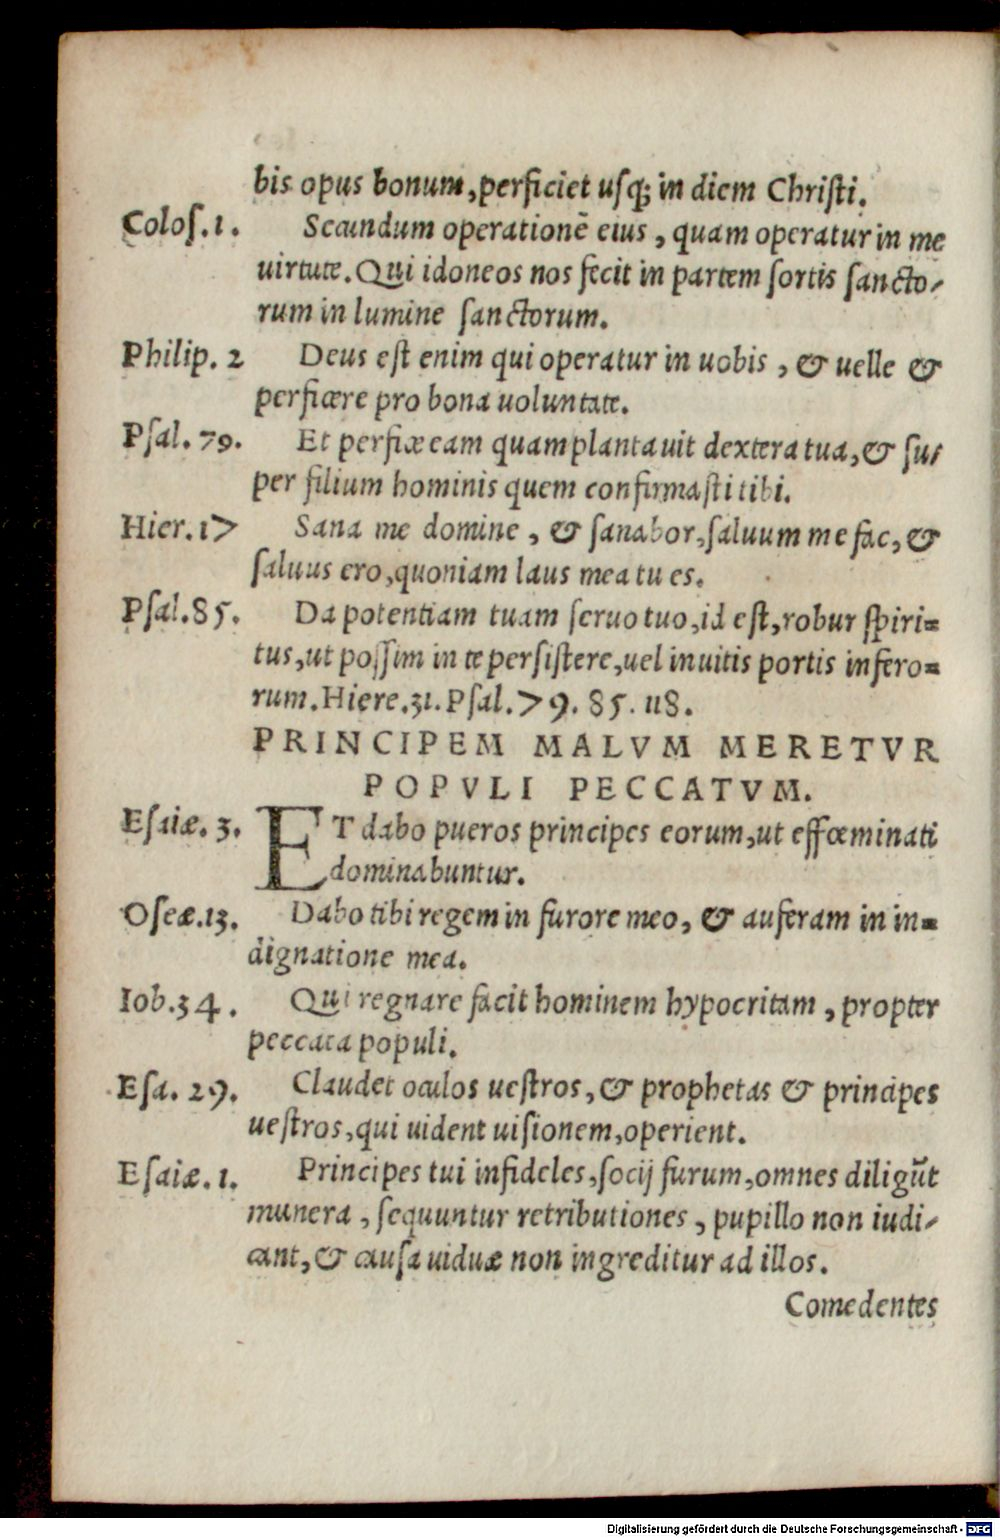 bis opus bonum, perficiet usq; in diem Christi.
Colos. 1. Secundum operationē eius, quam operatur in me
uirtute. Qui idoneos nos fecit in partem sortis sancto-
rum in lumine sanctorum.
Philip. 2 Deus est enim qui operatur in uobis, & uelle &
perficere pro bona uoluntate.
Psal. 79. Et perfice eam quam plantauit dextera tua, & su-
per filium hominis quem confirmasti tibi.
Hier. 17 Sana me domine, & sanabor, saluum me fac, &
saluus ero, quoniam laus mea tu es.
Psal. 85. Da potentiam tuam seruo tuo, id est, robur spiri-
tus, ut possim in te persistere, uel inuitis portis infero-
rum. Hiere. 31. Psal. 79. 85. 118.
PRINCIPEM MALVM MERETVR
POPVLI PECCATVM.
Esaiæ. 3. ET dabo pueros principes eorum, ut effœminati
dominabuntur.
Oseæ. 13. Dabo tibi regem in furore meo, & auferam in in-
dignatione mea.
Iob. 34. Qui regnare facit hominem hypocritam, propter
peccata populi.
Esa. 29. Claudet oculos uestros, & prophetas & principes
uestros, qui uident uisionem, operient.
Esaiæ. 1. Principes tui infideles, socij furum, omnes diligūt
munera, sequuntur retributiones, pupillo non iudi-
cant, & causa uiduæ non ingreditur ad illos.
Comedentes
Digitalisierung gefördert durch die Deutsche Forschungsgemeinschaft - DFG